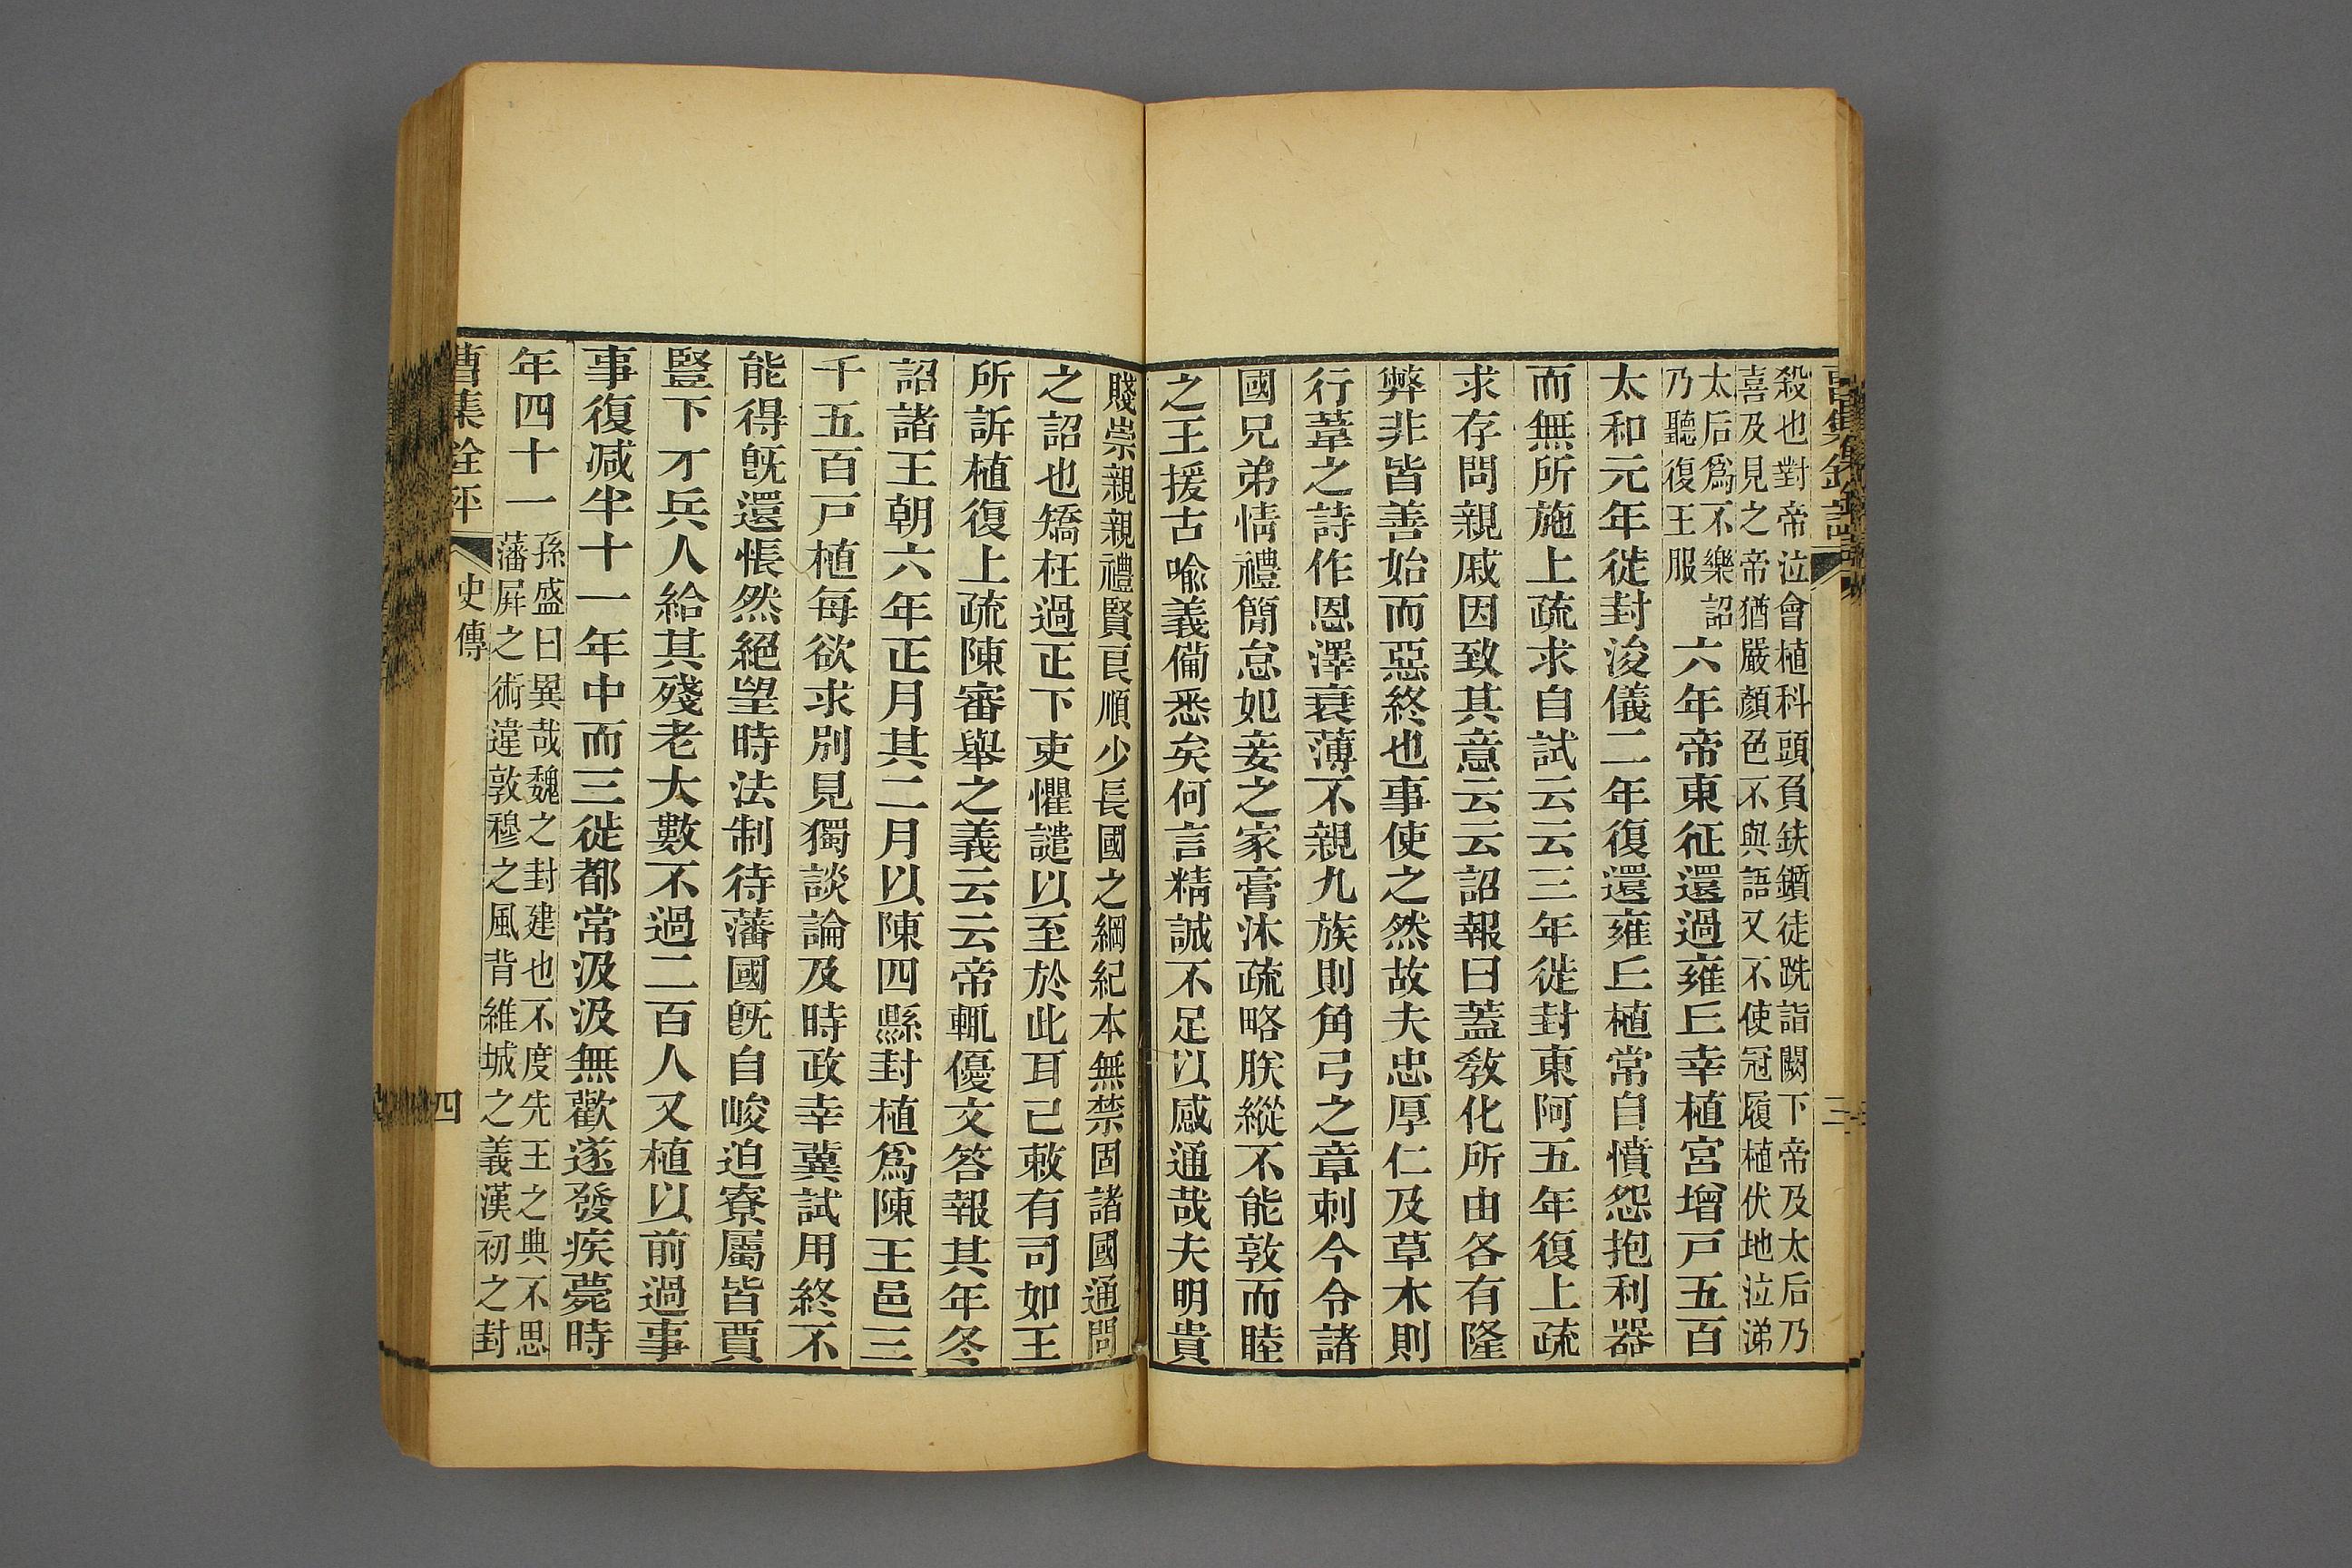 殺也對帝泣會植科頭負鈇鑕徒跣詣闕下帝及太后乃
喜及見之帝猶嚴顏色不與語又不使冠履植伏地泣涕
太后爲不樂詔
乃聽復王服
六年帝東征還過雍丘幸植宮增戸五百
太和元年徙封浚儀二年復還雍丘植常自憤怨抱利器
而無所施上疏求自試云云三年徙封東阿五年復上疏
求存問親戚因致其意云云詔報曰蓋敎化所由各有隆
弊非皆善始而惡終也事使之然故夫忠厚仁及草木則
行葦之詩作恩澤衰薄不親九族則角弓之章刺今令諸
國兄弟情禮簡怠妃妾之家膏沐疏略朕縱不能敦而睦
之王援古喻義備悉矣何言精誠不足以感通哉夫明貴
賤崇親親禮賢良順少長國之綱紀本無禁固諸國通問
之詔也矯枉過正下吏懼譴以至於此耳已敕有司如王
所訴植復上疏陳審舉之義云云帝輒優文答報其年冬
詔諸王朝六年正月其二月以陳四縣封植爲陳王邑三
千五百戸植每欲求別見獨談論及時政幸冀試用終不
能得旣還悵然絕望時法制待藩國旣自峻迫寮屬皆賈
豎下才兵人給其殘老大數不過二百人又植以前過事
事復减半十一年中而三徙都常汲汲無歡遂發疾薨時
年四十一
孫盛曰異哉魏之封建也不度先王之典不思
藩屏之術違敦穆之風背維城之義漢初之封
曹集詮評 史傳 四